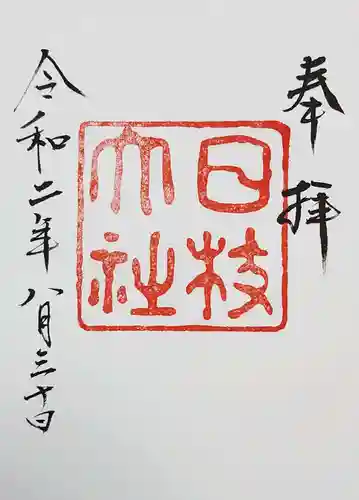 奉拝
日枝
大社
令和二年八月三十日